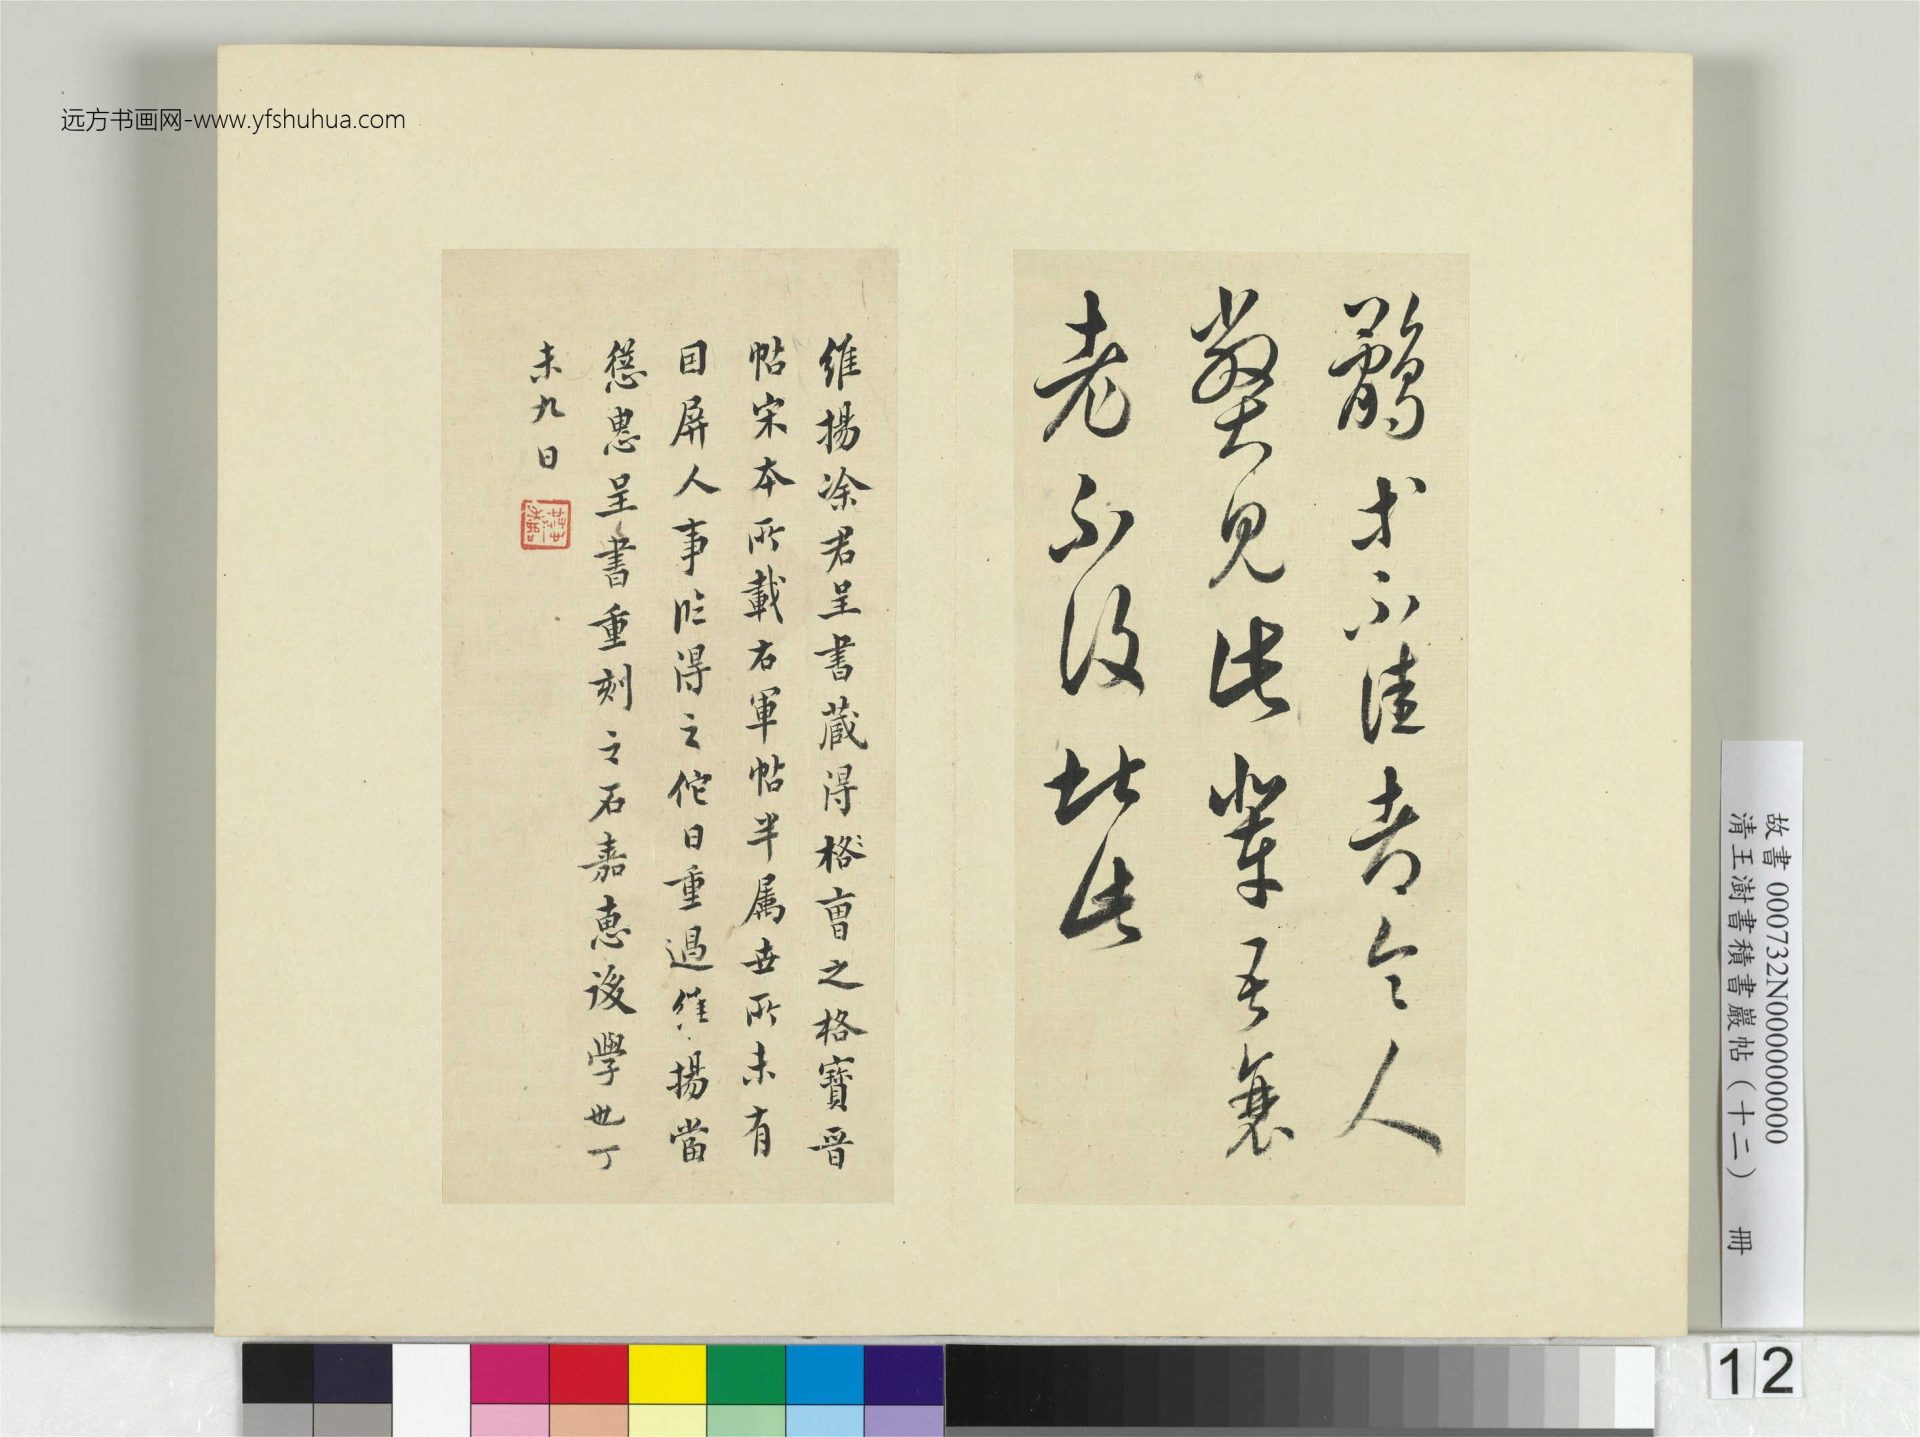 远方书画网-www.yfshuhua.com
霸才不佳者令人
弊見此輩吾衰
老不復堪此
維揚涂君呈書蔵得格曺之格寶晋
帖宋本所載右軍帖半属世所未有
目屏人事临得之佗日重過維揚當
慫恿呈書重刻之石嘉恵後學也丁
未九日
故書 000732N000000000
清王澍書積書巖帖(十二) 冊
12